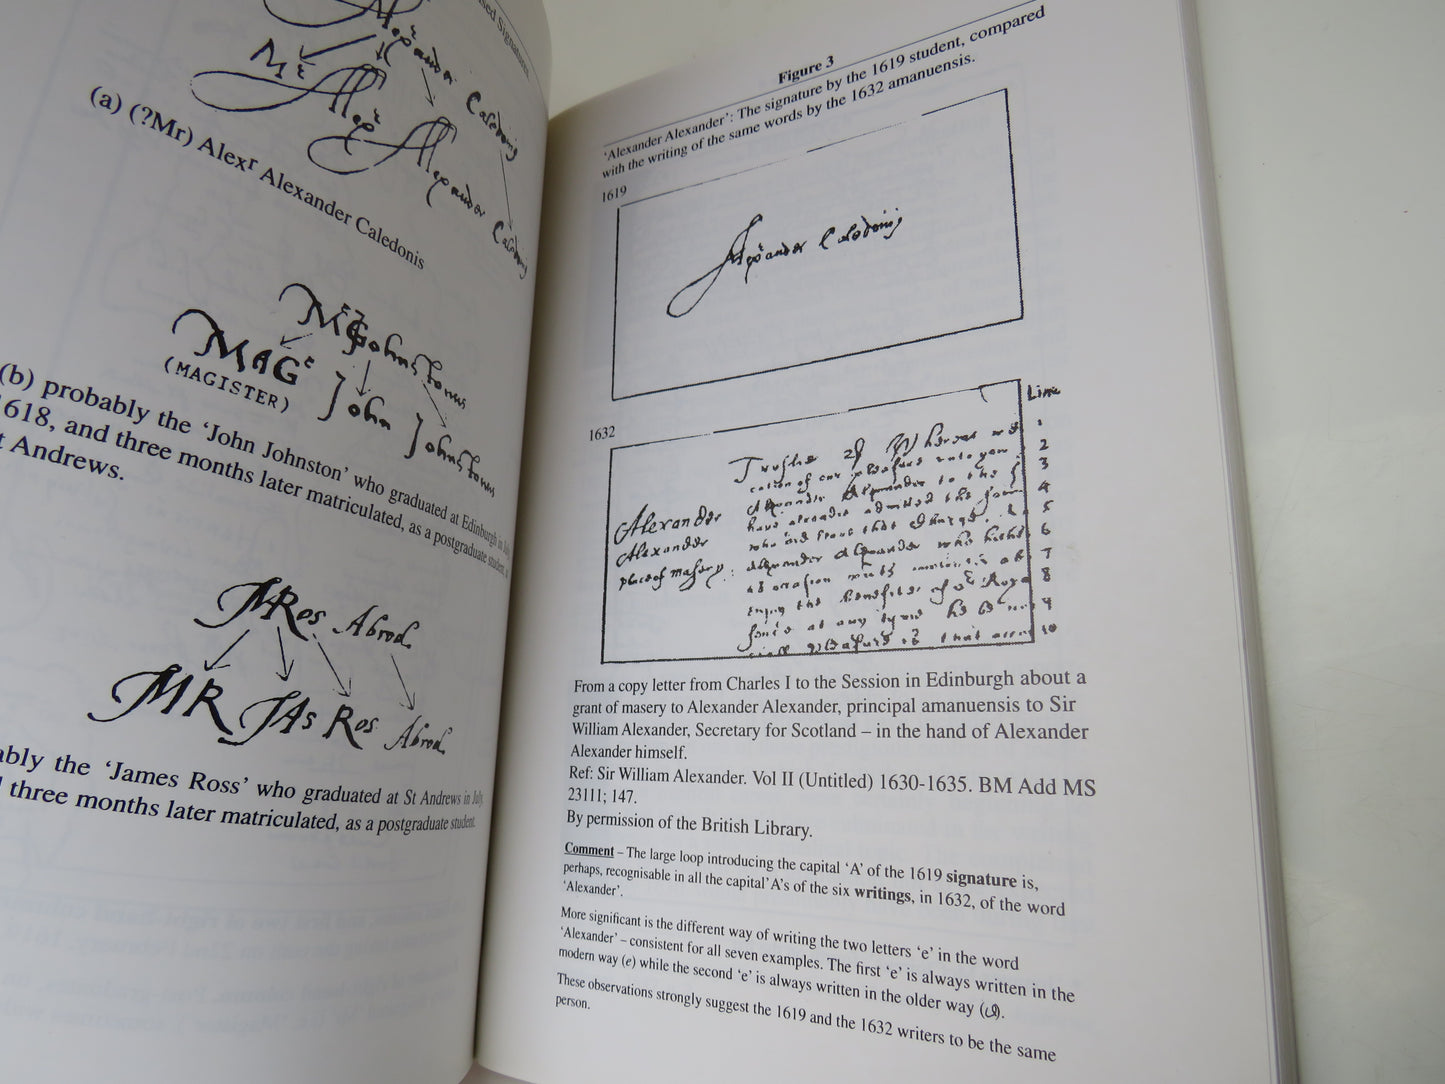 Mr
Alexr
Alexander
Caledonis
Caledonis
(a) (?Mr) Alexr Alexander Caledonis
MAGr
(MAGISTER)
John
Johnstonus
(b) probably the ‘John Johnston’ who graduated at Edinburgh in July
1618, and three months later matriculated, as a postgraduate student, at
St Andrews.
MRos Abrod.
MR JAs Ros Abrod.
ably the ‘James Ross’ who graduated at St Andrews in July,
three months later matriculated, as a postgraduate student.
Figure 3
‘Alexander Alexander’: The signature by the 1619 student, compared
with the writing of the same words by the 1632 amanuensis.
1619
Alexander Caledonij
1632
Line
1
2
3
4
5
6
7
8
9
10
Alexander
Alexander
place of masery:
Trustie
cation of our pleasure unto you
Alexander Alexander to the
have alreadie admitted the
who did
Alexander Alexander who
at any tyme he
From a copy letter from Charles I to the Session in Edinburgh about a
grant of masery to Alexander Alexander, principal amanuensis to Sir
William Alexander, Secretary for Scotland – in the hand of Alexander
Alexander himself.
Ref: Sir William Alexander. Vol II (Untitled) 1630-1635. BM Add MS
23111; 147.
By permission of the British Library.
Comment – The large loop introducing the capital ‘A’ of the 1619 signature is,
perhaps, recognisable in all the capital’A’s of the six writings, in 1632, of the word
‘Alexander’.
More significant is the different way of writing the two letters ‘e’ in the word
‘Alexander’ – consistent for all seven examples. The first ‘e’ is always written in the
modern way (e) while the second ‘e’ is always written in the older way ( ).
These observations strongly suggest the 1619 and the 1632 writers to be the same
person.